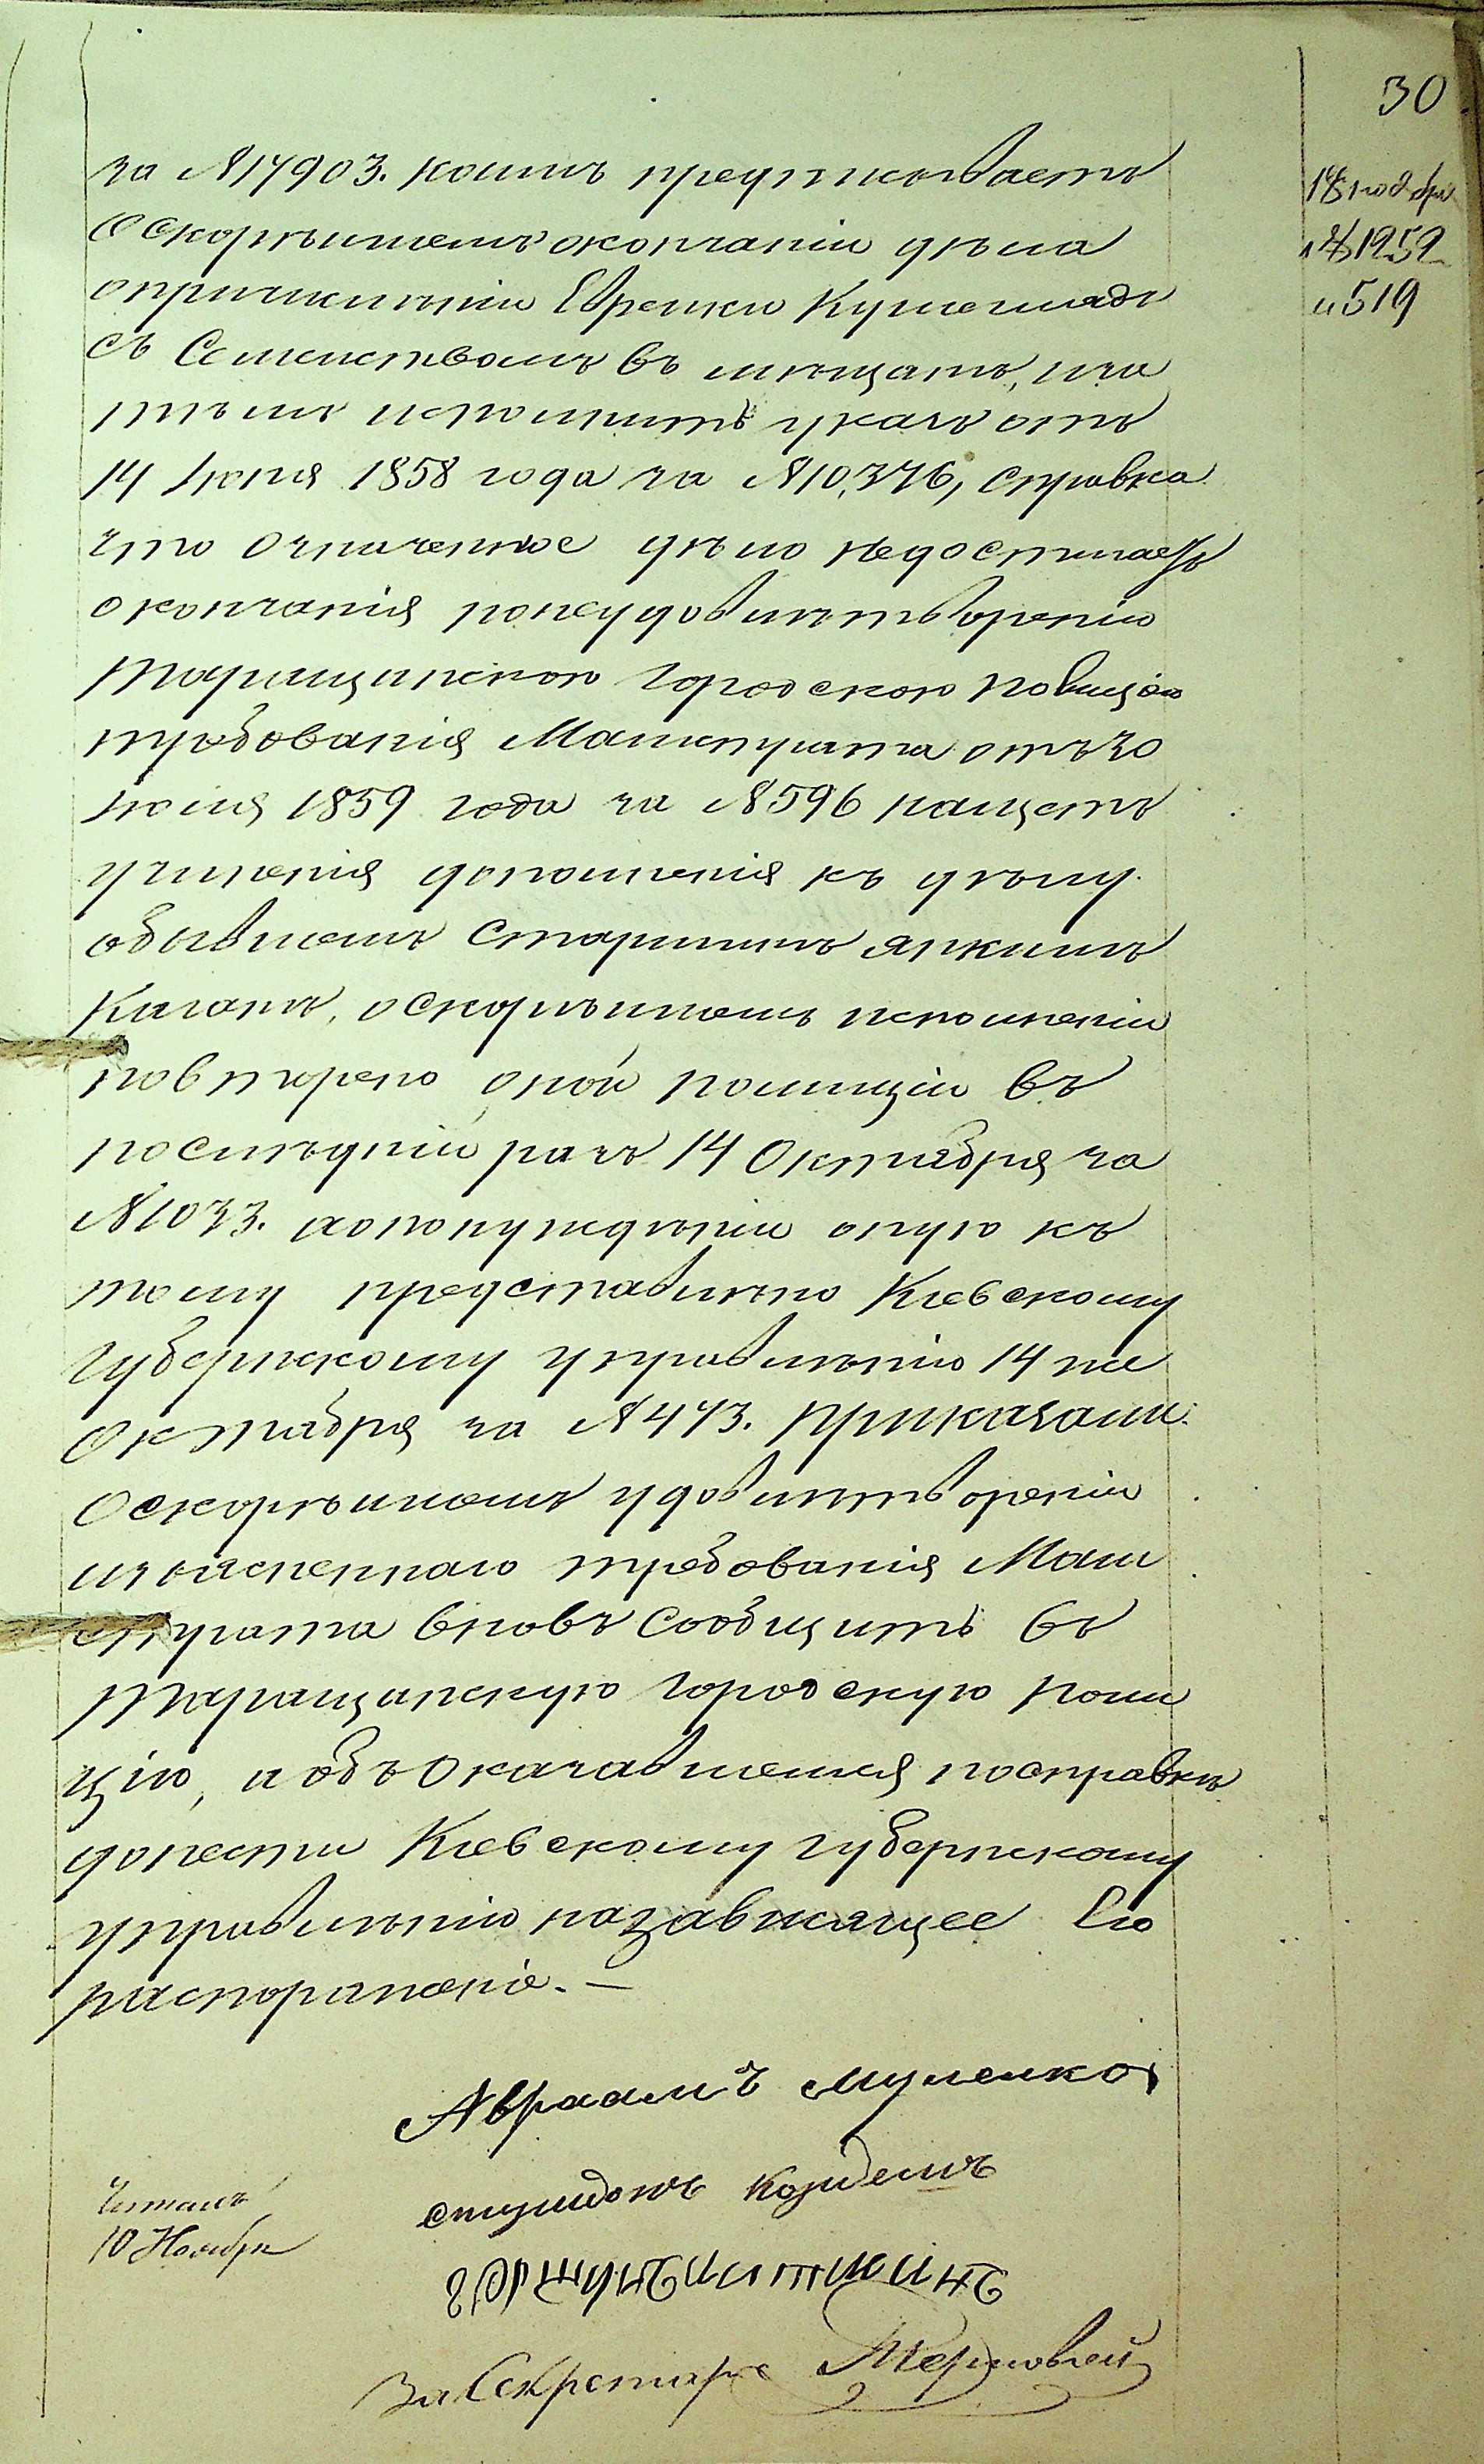 30
18 ноября
№ 1252
и 519
за №17903. коимъ предписываетъ
о скорѣйшемъ окончаніи дѣла
опричисленіи Еврейки Кушемлядъ
съ Семействомъ въ мѣщане, и за
тѣмъ исполнить указъ отъ
14 Іюня 1858 года за №10,376, справка
что означенное дѣло недостигаетъ
окончанія понеудовлѣтворенію
Таращанскою городскою полиціею
требованія Магистрата отъ 30
Іюля 1859 года за №596 нащетъ
учиненія дополненія къ дѣлу
обывшемъ Старшинѣ Янкилѣ
Каганѣ, о скорѣйшемъ исполненіи
повторено оной полиціи въ
послѣдній разъ 14 Октября за
№1033. а о понужденіи оную къ
тому представлѣно Кіевскому
губернскому управлѣнію 14 же
Октября за №473. Приказали:
О скорѣйшемъ удовлѣтвореніи
изъясненнаго требованія Маги
страта вновь сообщить въ
Таращанскую городскую поли
цію, а объ Оказавшемся посправкѣ
донести Кіевскому губернскому
управлѣнію назависящее Его
распоряженіе. —
Авраамъ
За Секретаря
Читалъ
10 Ноября